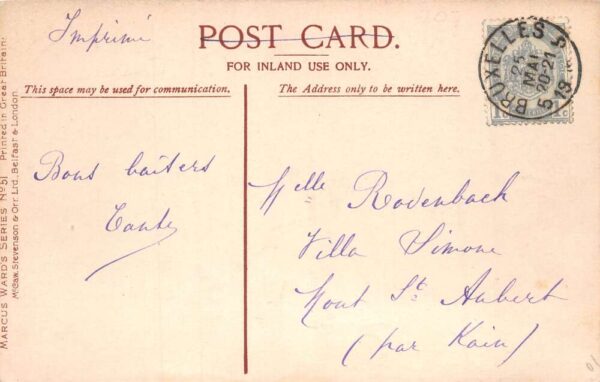 Imprimé
POST CARD.
FOR INLAND USE ONLY.
This space may be used for communication.
The Address only to be written here.
BRUXELLES 5
25
MAI
20-21
19
5
1c 1c
Bons baisers
Tante
Melle Rodenbach
Villa Simone
Mont St Aubert
(par Kain)
MARCUS WARD'S SERIES No 51 Printed in Great Britain.
McCaw, Stevenson & Orr Ltd., Belfast & London.